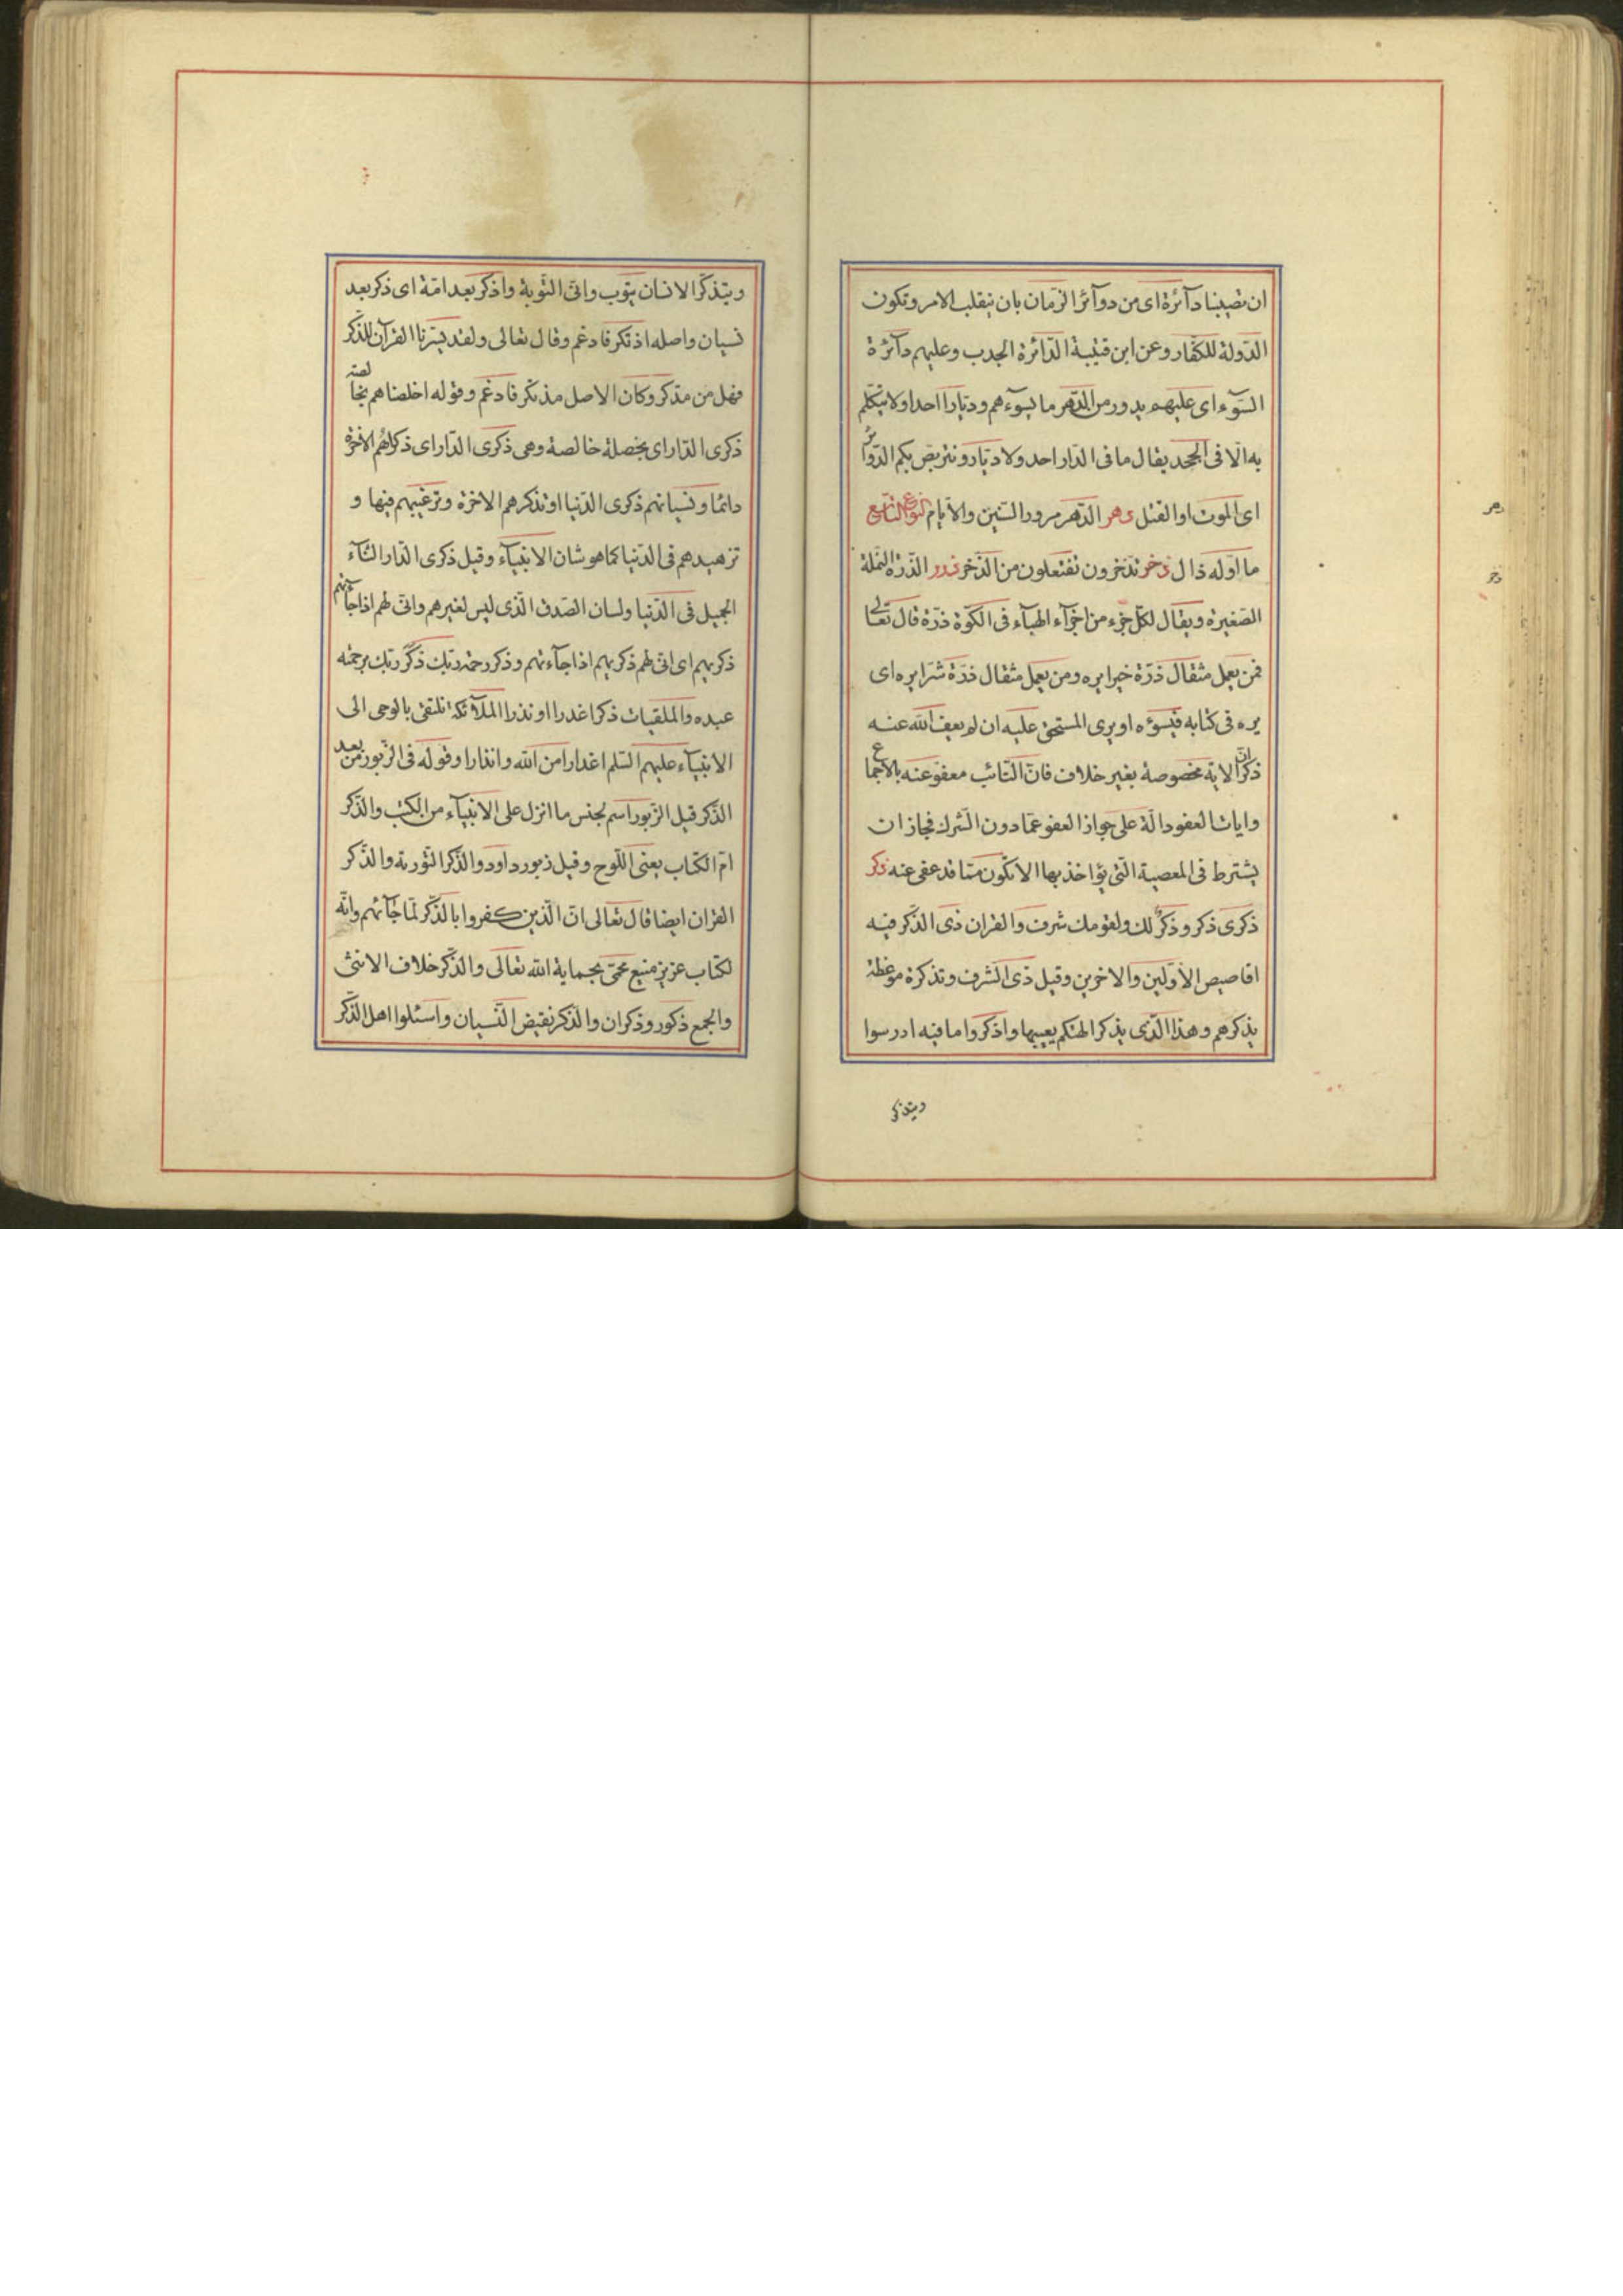 ان تصيبنا دآئرة اى من دوآئر الزمان بان ينقلب الامر وتكون
الدّولة للكفّار وعن ابن قتيبة الدّائرة الجدب وعليهم دآئرة
السّوء اى عليهم يدور من الدّهر ما يسوءهم وديّارا احدا ولا يتكلم
به الّا فى الجحد يقال ما فى الدّار احد ولا ديّار ونتربص بكم الدّوائر
اى الموت او القتل دهر الدّهر مرور السّنين والايام النوع التّاسع
ما اوّله ذال ذخر تدّخرون تفتعلون من الذّخر ذرر الذّرة النّملة
الصّغيرة ويقال لكلّ جزء من اجزآء الهبآء فى الكوّة ذرّة قال تعالى
فمن يعمل مثقال ذرّة خيرا يره ومن يعمل مثقال ذرّة شرّا يره اى
يره فى كتابه فيسوءه او يرى المستحق عليه ان لم يعف الله عنه
ذكر انّ الاية مخصوصة بغير خلاف فانّ التّائب معفوّ عنه بالاجماع
وايات العفو دالّة على جواز العفو عمّا دون الشّرك فجاز ان
يشترط فى المعصية الّتى يؤاخذ بها الا تكون ممّا قد عفى عنه ذكر
ذكرى ذكر وذكرٌ لك ولقومك شرف والقران ذى الذّكر فيه
اقاصيص الاوّلين والاخرين وقيل ذى الشرف وتذكرة موعظة
يذكرهم وهذا الّذى يذكر الهتكم يعيبها واذكروا ما فيه ادرسوا
ويتذكر
دهر
ذخر
ويتذكّر الانسان يتوب وانّى التّوبة واذكر بعد امّة اى ذكر بعد
نسيان واصله اذتكر فادغم وقال تعالى ولقد يسّرنا القرآن للذّكر
فهل من مدّكر وكان الاصل مذتكر فادغم وقوله اخلصناهم بخالصة
ذكرى الدّار اى بخصلة خالصة وهى ذكرى الدّار اى ذكراهم الاخرة
دائما ونسيانهم ذكرى الدّنيا او تذكرهم الاخرة وترغيبهم فيها و
تزهيدهم فى الدّنيا كما هو شان الانبيآء وقيل ذكرى الدّار الثنآء
الجميل فى الدّنيا ولسان الصّدق الّذى ليس لغيرهم وانّى لهم اذا جآئتهم
ذكريهم اى انّى لهم ذكريهم اذا جآءتهم وذكر رحمة ربّك ذكر ربّك برحمته
عبده والملقيات ذكرا عذرا او نذرا الملآئكة تلتقى بالوحى الى
الانبيآء عليهم السّلم اعذارا من الله وانذارا وقوله فى الزّبور من بعد
الذّكر قيل الزّبور اسم لجنس ما انزل على الانبيآء من الكتب والذّكر
امّ الكتاب يعنى اللّوح وقيل زبور داود والذّكر التّورية والذّكر
القران ايضا قال تعالى انّ الّذين كفروا بالذّكر لمّا جآئهم وانّه
لكتاب عزيز منيع محمىّ بحماية الله تعالى والذّكر خلاف الانثى
والجمع ذكور وذكران والذّكر نقيض النّسيان واسئلوا اهل الذّكر